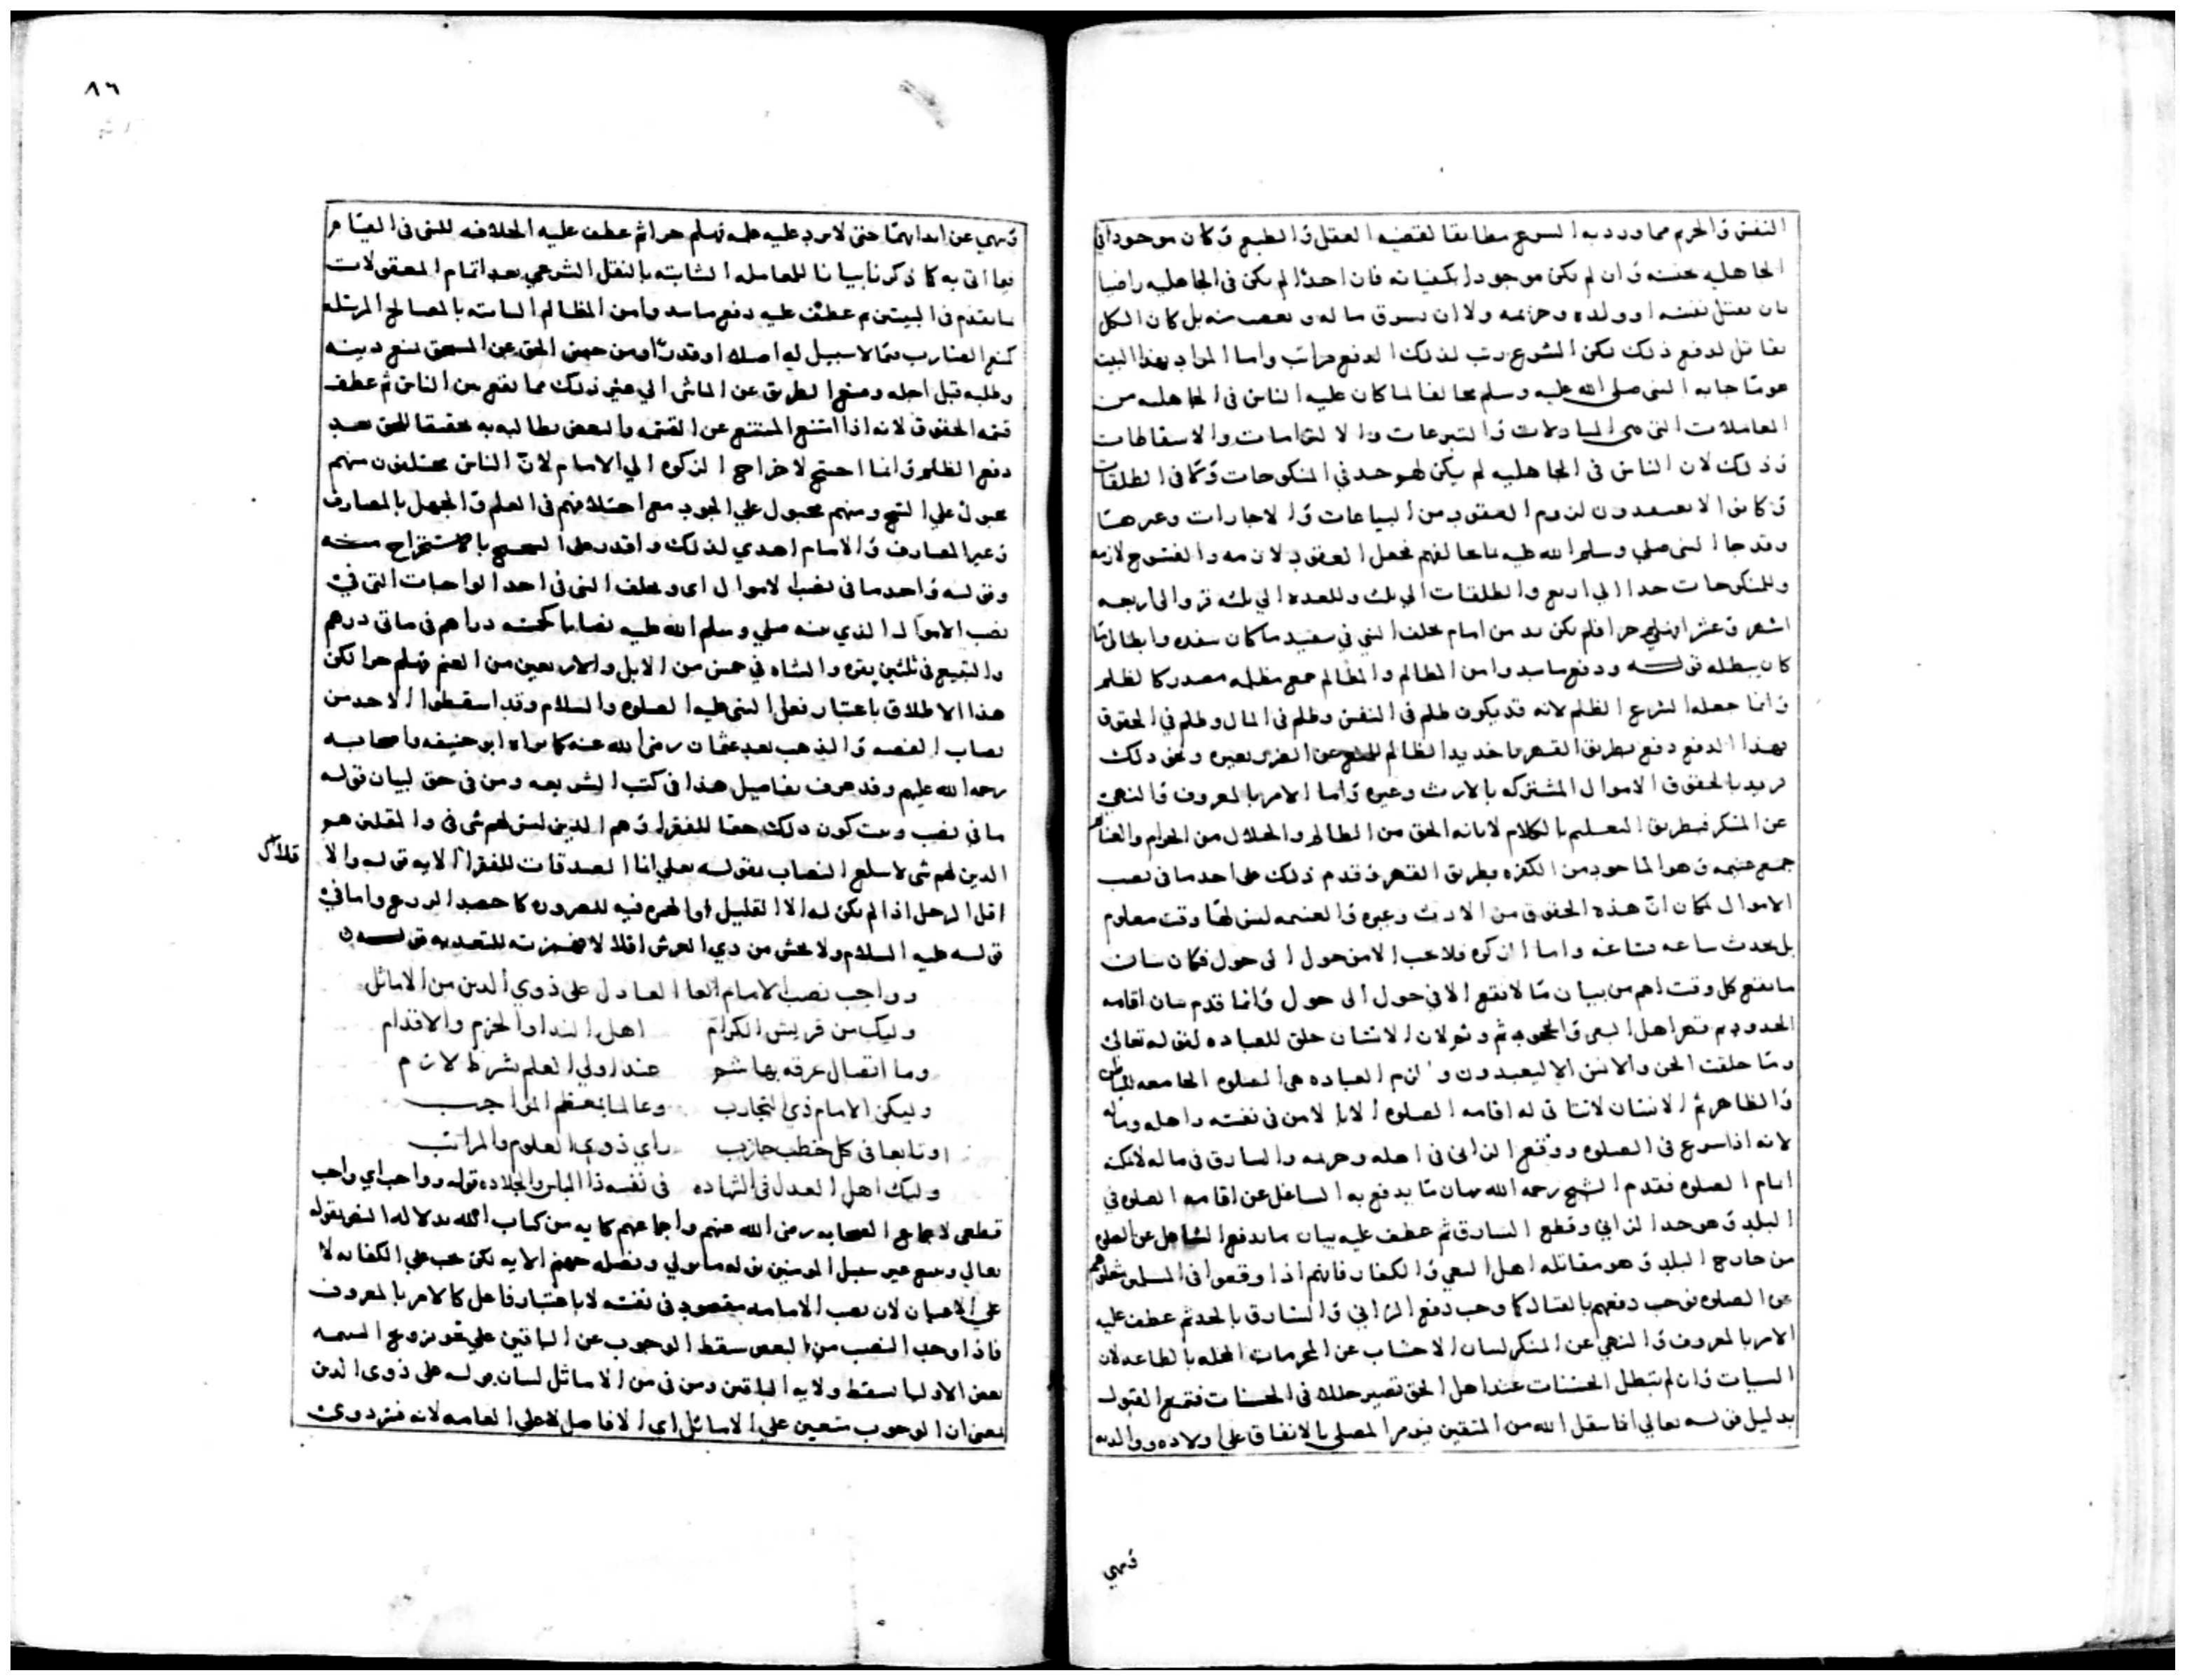 النفس والحرم مما ورد به الشرع مطابقا لقضية العقل والطبع وكان موجودا في
الجاهلية بجنسه وان لم يكن موجودا بكيفياته فان احدا لم يكن في الجاهلية راضيا
بان يقتل نفسه او ولده وحريمه ولا ان يسرق ماله ويغصب منه بل كان الكل
يقاتل لدفع ذلك لكن الشرع رتب لذلك الدفع مراتب واما المراد بهذا البيت
هو ما جابه النبي صلى الله عليه وسلم مخالفا لما كان عليه الناس في الجاهلية من
المعاملات التي هي المبادلات والتبرعات والالتزامات والاسقاطات
وذلك لان الناس في الجاهلية لم يكن لهم حد في المنكوحات وكما في الطلقات
وكانوا لا يعتقدون لزوم العقود من البياعات والاجارات وغيرها
وقد جا النبي صلي وسلم الله عليه بما يخالفهم فجعل العقود لازمه والفسوخ لازمه
وللمنكوحات حدا الي اربع والطلقات الي ثلث وللعده الي ثلثه قرو الى اربعه
اشهر وعشر فلم يكن بد من امام يخلف النبي في تنفيذ ما كان ينفذه وابطال ما
كان يبطله قوله ودفع ما يبدوا من المظالم والمظالم جمع مظلمه مصدر كالظلم
وانما جعله انواع الظلم لانه قد يكون ظلم في النفس وظلم في المال وظلم في الحقوق
بهذا الدفع دفع بطريق القهر باخذ يد الظالم عن الغير ونحو ذلك
نريد بالحقوق الاموال المشتركه بالارث وغيره واما الامر بالمعروف والنهي
عن المنكر فبطريق التعليم بالكلام لابانه الحق من الظالم والحلال من الحرام والغنايم
جمع غنيمه وهو الماخوذ من الكفره بطريق القهر وقدم ذلك على اخذ ما في نصب
الاموال لمكان ان هذه الحقوق من الارث وغيره والغنيمه ليس لها وقت معلوم
بل يحدث ساعه فساعه واما الزكوه فلا يجب الا من حول الى حول فكان بيان
ما يقع كل وقت اهم من بيان ما لا يقع الا في حول الى حول وانما قدم بيان اقامه
الحدود ثم قهر اهل البغي والجحود ثم ولان الانسان خلق للعباده لقوله تعالى
وما خلقت الجن والانس الا ليعبدون والزم العباده هي الصلوه الجامعه للباطن
والظاهر ثم الانسان لا يتاتى له اقامه الصلوه الا بالامن في نفسه واهله وماله
لانه اذا شرع في الصلوه ووقع الزاني في اهله وحريمه والسارق في ماله لا يمكنه
اتمام الصلوه فقدم الشيخ رحمه الله بيان ما يدفع به الشاغل عن اقامه الصلوه في
البلد وهو حد الزاني وقطع السارق ثم عطف عليه بيان ما يدفع الشاغل عن الصلوه
من خارج البلد وهو مقاتله اهل البغي والكفار فانهم اذا وقعوا في المسلمين شغلوهم
عن الصلوه فوجب دفعهم بالقتال كما وجب دفع الزاني والسارق بالحد ثم عطف عليه
الامر بالمعروف والنهي عن المنكر لبيان الاحتساب عن المحرمات المخله بالطاعه لان
السيات وان لم تبطل الحسنات عند اهل الحق تصير خللا في الحسنات فتمنع القبول
بدليل قوله تعالي انما يتقبل الله من المتقين فيومر المصلي بالانفاق على اولاده ووالديه
وهي
٨٦
وهي عن ايذايهما حتى لا يرد عليه ثم عطف عليه الخلافه للنبي في القيام
فيما اتى به كما ذكرنا بيانا للمعامله الثابته بالنقل الشرعي بعد اتمام المعقولات
ما يقدم في البيتين ثم عطف عليه دفع ما يبدوا من المظالم الثابته بالمصالح المرسله
كمنع الضارب بما لا سبيل له اصلا او قدرا ومن حبس الحق عن المستحق لمنع دينه
وطلبه قبل اجله ومنع الطريق عن الماشي الي غير ذلك مما يقع من الناس ثم عطف
قسمه الحقوق لانه اذا امتنع الممتنع عن القسمه والبعض يطالبه به تحقيقا للحق بعد
دفع الظلم وانما احتيج لاخراج الزكوه الي الامام لان الناس مختلفون منهم
مجبول علي الشح ومنهم مجبول علي الجود مع اختلافهم في العلم والجهل بالمصارف
وغير المصارف والامام اهدي لذلك واقدر على الشحيح بالاستخراج منه
وقوله واخذ ما في نصب الاموال اي ويخلف النبي في اخذ الواجبات التي في
نصب الاموال الذي عينه صلي وسلم الله عليه نصابا كخمسه دراهم في مائتي درهم
والتبيع في ثلثين بقره والشاه في خمس من الابل والاربعين من الغنم لكن
هذا الاطلاق باعتبار فعل النبي عليه الصلوه والسلام وقد اسقطوا الاخذ من
نصاب الفضه والذهب بعد عثمان رضي الله عنه كما رواه ابو حنيفه واصحابه
رحمه الله عليهم وقد عرف تفاصيل هذا في كتب الشريعه ومن في حق لبيان قوله
ما في نصب وثبت كون ذلك حقا للفقرا وهم الذين ليس لهم شي في والمقلين هو
الذين لهم شي لا يبلغ النصاب بقوله تعلي انما الصدقات للفقرا الايه قوله والا
قلال
اقل الرجل اذا لم يكن له الا القليل او الهمزه فيه للصروره كاحصد الزرع واما في
قوله عليه السلام ولا تخش من ذي العرش اقلالا فهمزته للتعديه قوله
وواجب نصب الامام العادل على ذوي الدين من الاماثل
وليك من قريش الكرام اهل الندا والحزم والاقدام
وما اتصال عرقه بهاشم عند اولي العلم بشرط لازم
وليكن الامام ذي التجارب وعالما بمعظم المواجب
او تابعا في كل خطب حازب راي ذوي العلوم والمراتب
وليك اهل العدل في الشهاده في نفسه ذا الباس والجلاده قوله وواجب اي واجب
قطعي لاجماع الصحابه رضي الله عنهم واجماعهم كايه من كتاب الله بدلاله النص بقوله
تعالي ويتبع غير سبيل المومنين نوله ما تولي ونصله جهنم الايه لكن يجب علي الكفايه لا
علي الاعيان لان نصب الامامه مقصود في نفسه لا باعتبار فاعل كالامر بالمعروف
فاذا وجد النصب من البعض سقط الوجوب عن الباقين علي نحو تزويج اليتيمه
بعض الاوليا يسقط ولايه الباقين ومن في من الاماثل لبيان قوله على ذوي الدين
بمعنى ان الوجوب متعين علي الاماثل اي الافاضل لا علي العامه لانه فيه دوى